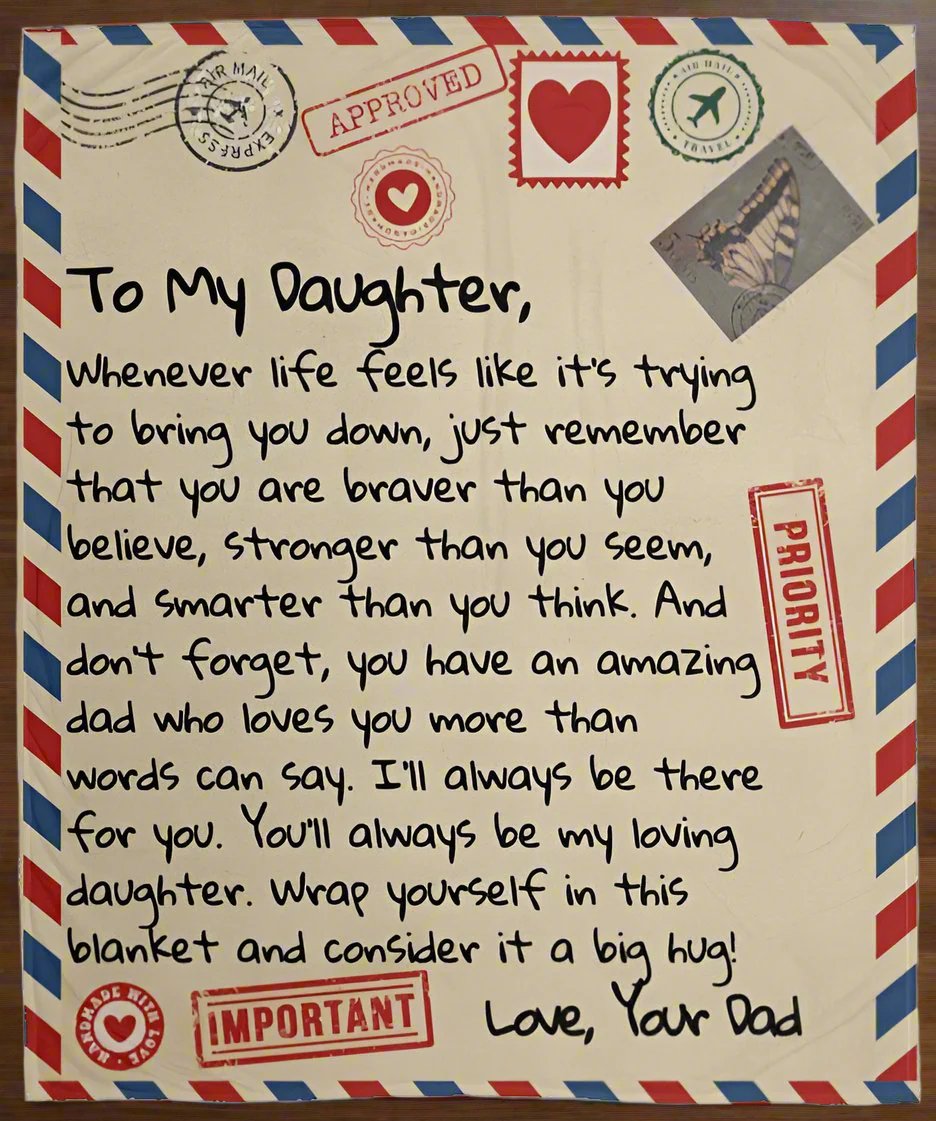 AIR MAIL
EXPRESS
APPROVED
AIR MAIL
TRAVEL
HANDMADE HANDMADE HANDMADE
To My Daughter,
Whenever life feels like it's trying
to bring you down, just remember
that you are braver than you
believe, stronger than you seem,
and smarter than you think. And
don't forget, you have an amazing
dad who loves you more than
words can say. I'll always be there
for you. You'll always be my loving
daughter. Wrap yourself in this
blanket and consider it a big hug!
Love, Your Dad
PRIORITY
HANDMADE WITH LOVE
IMPORTANT